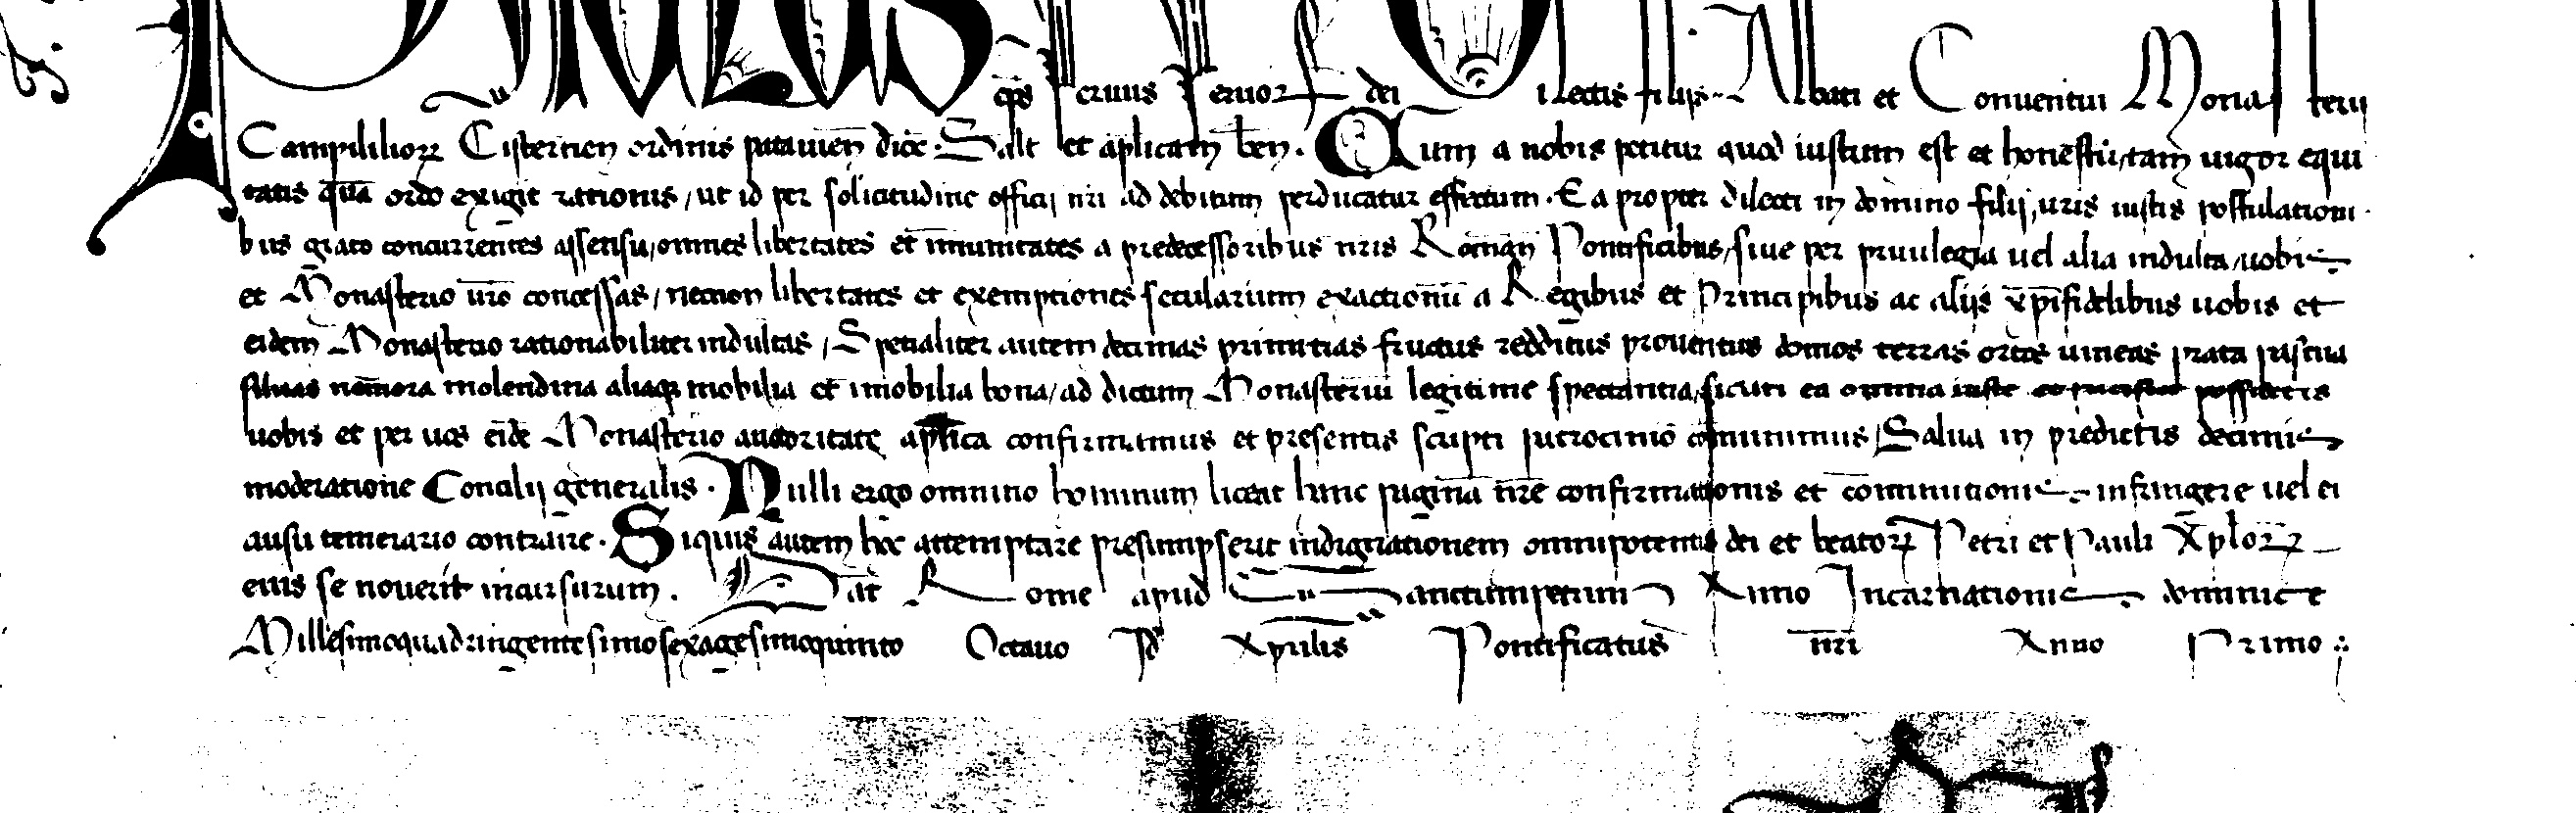 Paulus eps Seruus Seruorum dei Dilectis filijs Abbati et Conuentui Monasterij
Campililiorꝝ Cistercien ordinis patauien dioc̄. Salt et aplicam ben. Cum a nobis petitur quod iustum est et honestū, tam uigor equi
tatis quā ordo exigit rationis, ut id per solicitudinē officij nr̄i ad debitum perducatur effectum. Ea propter dilecti in domino filij, ur̄is iustis postulationi
bus grato concurrentes assensu, omnes libertates et īmunitates a predecessoribus nr̄is Roman̄ Pontificibus, siue per priuilegia uel alia indulta, uobis
et Monasterio ur̄o concessas, necnon libertates et exemptiones secularium exactionū a Regibus et Principibus ac alijs xp̄ifidelibus uobis et
eidem Monasterio rationabiliter indultas, Specialiter autem decimas primitias fructus redditus prouentus domos terras ortos uineas prata pascua
siluas nemora molendina aliaqꝫ mobilia et īmobilia bona, ad dictum Monasteriū legitime spectantia, sicuti ea omnia iuste et pacifice possidetis
uobis et per uos eidē Monasterio auctoritate ap̄lica confirmamus et presentis scripti patrocinio cōmunimus, Salua in predictis decimis
moderatione Concilij generalis. Nulli ergo omnino hominum liceat hanc paginā nr̄e confirmationis et cōmunitionis infringere uel ei
ausu temerario contraire. Siquis autem hoc attemptare presumpserit indignationem omnipotentis dei et beatorꝝ Petri et Pauli Ap̄lorꝝ
eius se nouerit incursurum. Dat̄ Rome apud Sanctumpetrum Anno Incarnationis dominice
Millesimoquadringentesimosexagesimoquinto Octauo Id Aprilis Pontificatus nr̄i Anno Primo